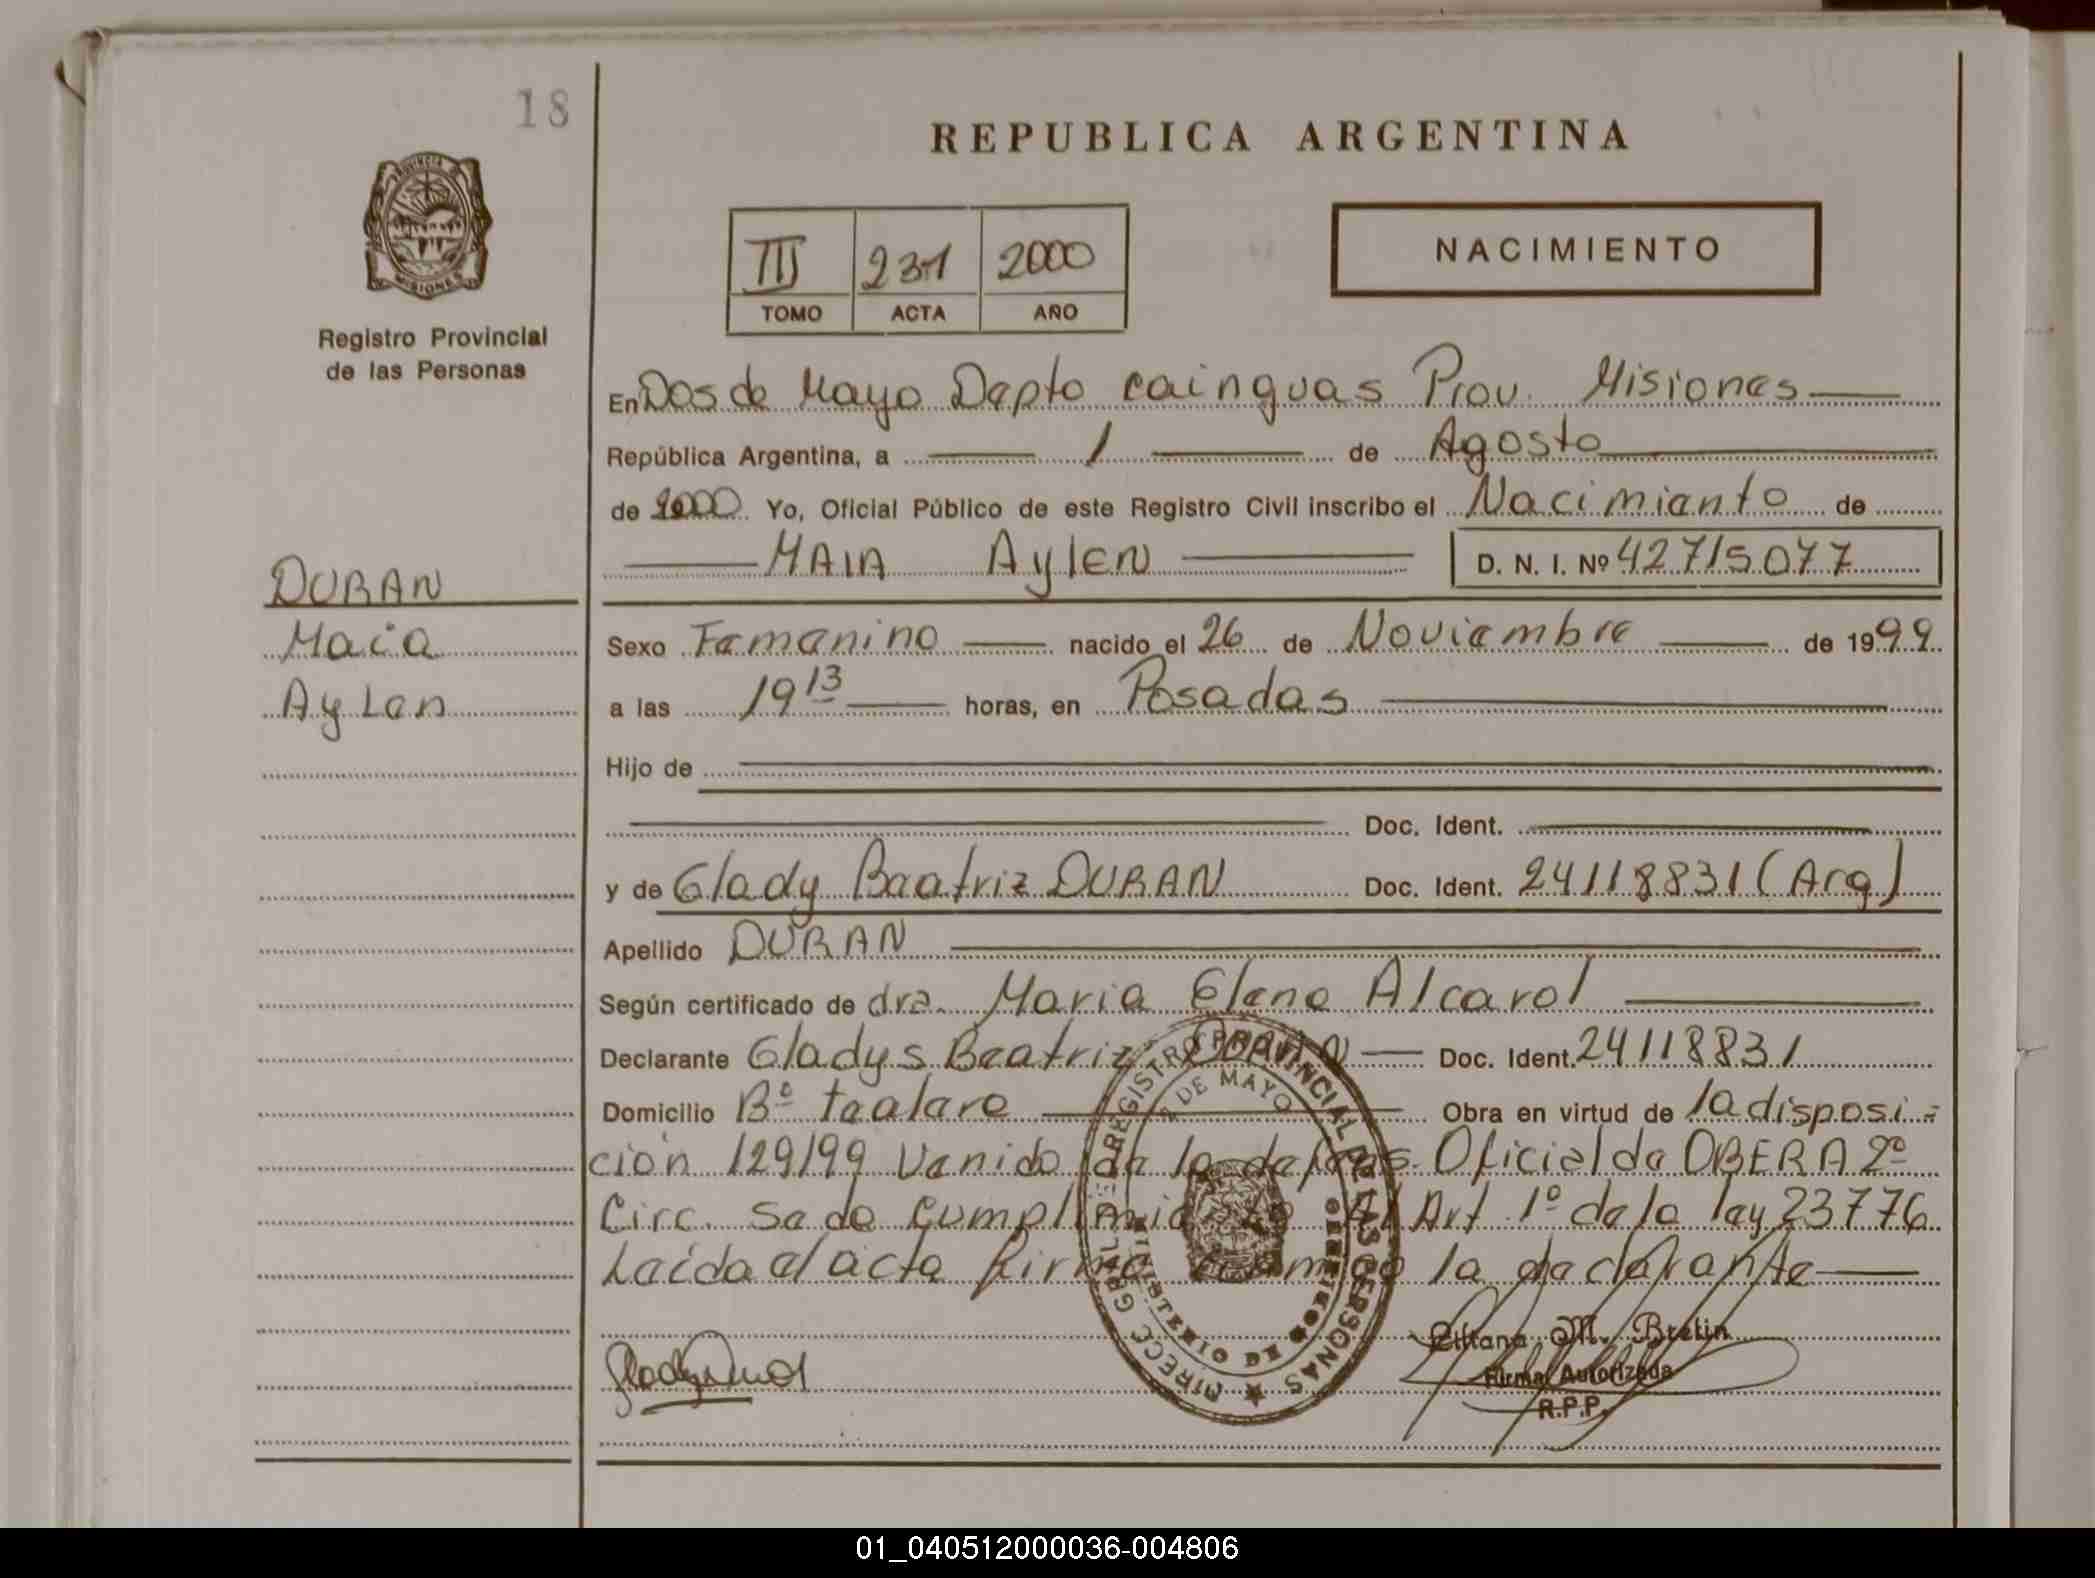 18
REPUBLICA ARGENTINA
III 231 2000
TOMO ACTA AÑO
NACIMIENTO
PROVINCIA
MISIONES
Registro Provincial
de las Personas
En Dos de Mayo Depto cainguas Prov. Misiones
República Argentina, a 1 de Agosto
de 2000 Yo, Oficial Público de este Registro Civil inscribo el Nacimiento de
MAIA AylEN D. N. I. Nº 42715077
DURAN
Maia
Aylen
Sexo Femenino nacido el 26 de Noviembre de 1999
a las 19 13 horas, en Posadas
Hijo de
Doc. Ident.
y de Glady Beatriz DURAN Doc. Ident. 24118831 (Arg)
Apellido DURAN
Según certificado de dra. Maria Elena Alcarol
Declarante Gladys Beatriz DURAN Doc. Ident. 24118831
Domicilio Bº tealero Obra en virtud de la disposi-
ción 129/99 Venido de la Oficial de OBERA 2º
Circ. se da cumplimiento Al Art 1º de la ley 23776
Leída el acta firma conmigo la declarante
DIRECC GRAL REGISTRO PROVINCIAL DE LAS PERSONAS
2 DE MAYO
MINISTERIO DE GOBIERNO
M. Brelin
Firma Autorizada
R.P.P.
01_040512000036-004806